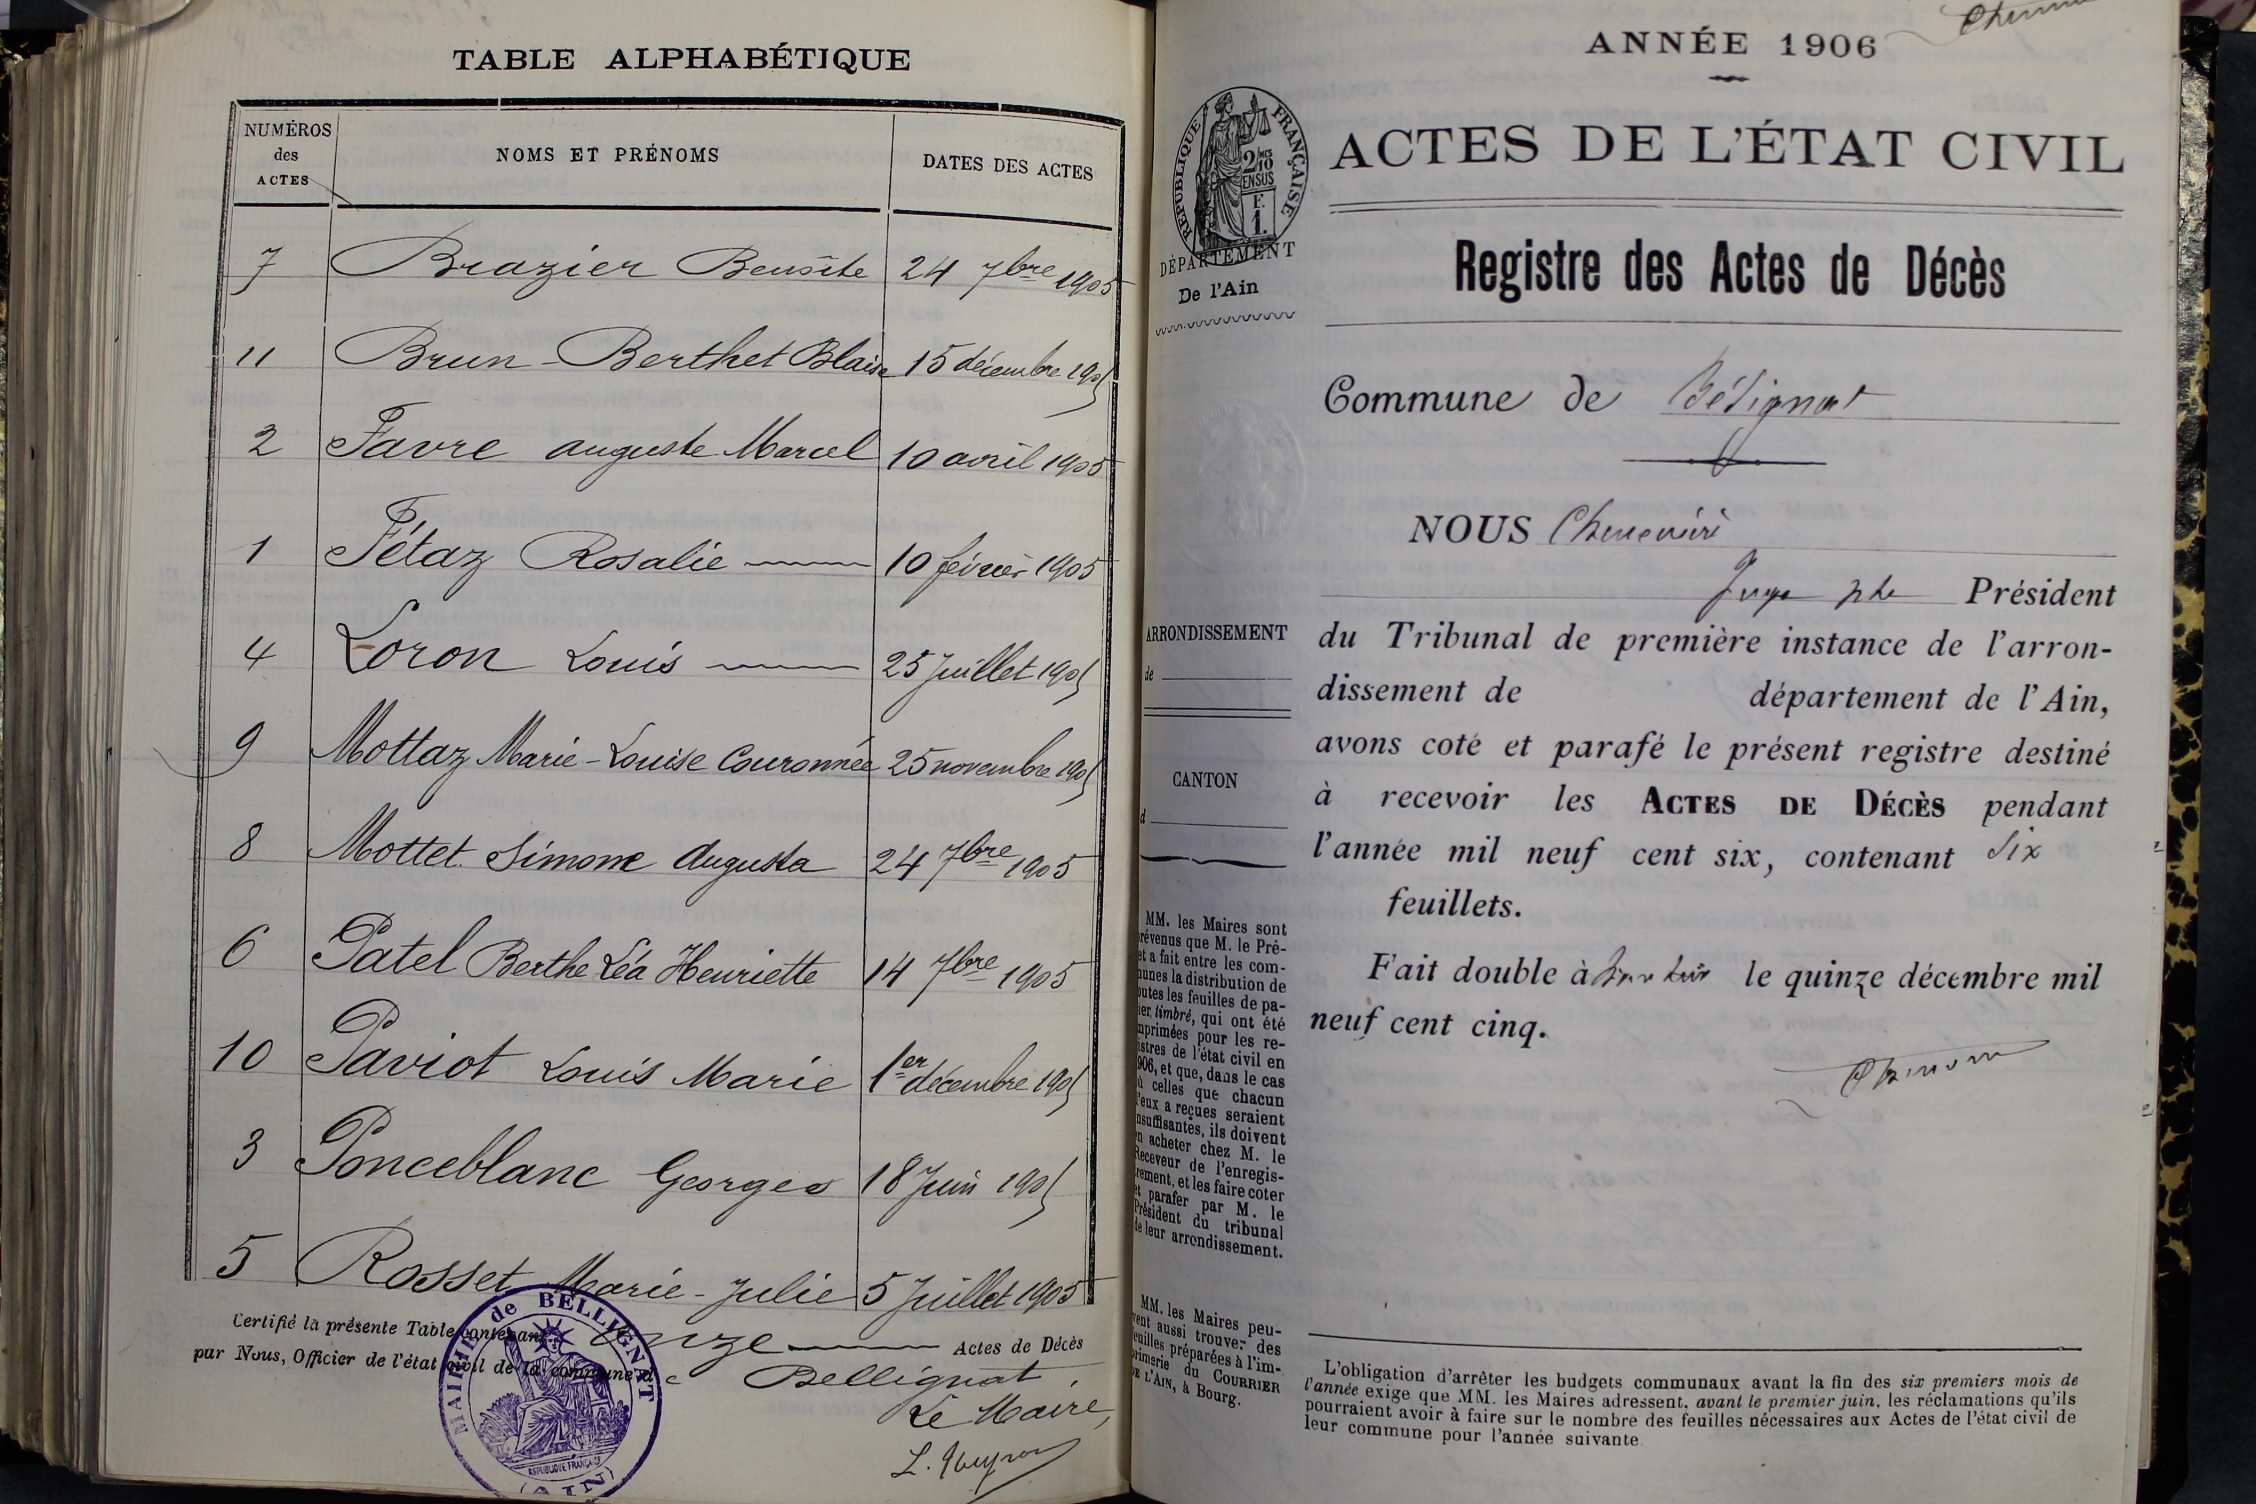 TABLE ALPHABÉTIQUE
NUMÉROS des ACTES
NOMS ET PRÉNOMS
DATES DES ACTES
7 Brazier Benoîte 24 7bre 1905
11 Brun-Berthet Blaise 15 décembre 1905
2 Favre auguste Marcel 10 avril 1905
1 Fétaz Rosalie 10 février 1905
4 Loron Louis 25 Juillet 1905
9 Mottaz Marie-Louise Couronnée 25 novembre 1905
8 Mottet Simone Augusta 24 7bre 1905
6 Patel Berthe Léa Henriette 14 7bre 1905
10 Paviot Louis Marie 1er décembre 1905
3 Ponceblanc Georges 18 Juin 1905
5 Rosset Marie-Julie 5 Juillet 1905
Certifié la présente Table contenant onze Actes de Décès
par Nous, Officier de l'état civil de la commune de Bellignat,
Le Maire,
MAIRIE de BELLIGNAT
RÉPUBLIQUE FRANÇAISE
(AIN)
ANNÉE 1906
ACTES DE L'ÉTAT CIVIL
RÉPUBLIQUE FRANÇAISE
2/10 EN SUS
F. 1.
DÉPARTEMENT
De l'Ain
Registre des Actes de Décès
Commune de
NOUS
Juge Président
ARRONDISSEMENT
de
CANTON
d
du Tribunal de première instance de l'arron-
dissement de département de l'Ain,
avons coté et parafé le présent registre destiné
à recevoir les ACTES DE DÉCÈS pendant
l'année mil neuf cent six, contenant six
feuillets.
Fait double à le quinze décembre mil
neuf cent cinq.
MM. les Maires sont
prévenus que M. le Pré-
et a fait entre les com-
munes la distribution de
toutes les feuilles de pa-
ier timbré, qui ont été
mprimées pour les re-
istres de l'état civil en
906, et que, dans le cas
ù celles que chacun
'eux a reçues seraient
nsuffisantes, ils doivent
n acheter chez M. le
Receveur de l'enregis-
rement, et les faire coter
et parafer par M. le
Président du tribunal
de leur arrondissement.
MM. les Maires peu-
vent aussi trouver des
feuilles préparées à l'im-
primerie du COURRIER
DE L'AIN, à Bourg.
L'obligation d'arrêter les budgets communaux avant la fin des six premiers mois de
l'année exige que MM. les Maires adressent, avant le premier juin, les réclamations qu'ils
pourraient avoir à faire sur le nombre des feuilles nécessaires aux Actes de l'état civil de
leur commune pour l'année suivante.